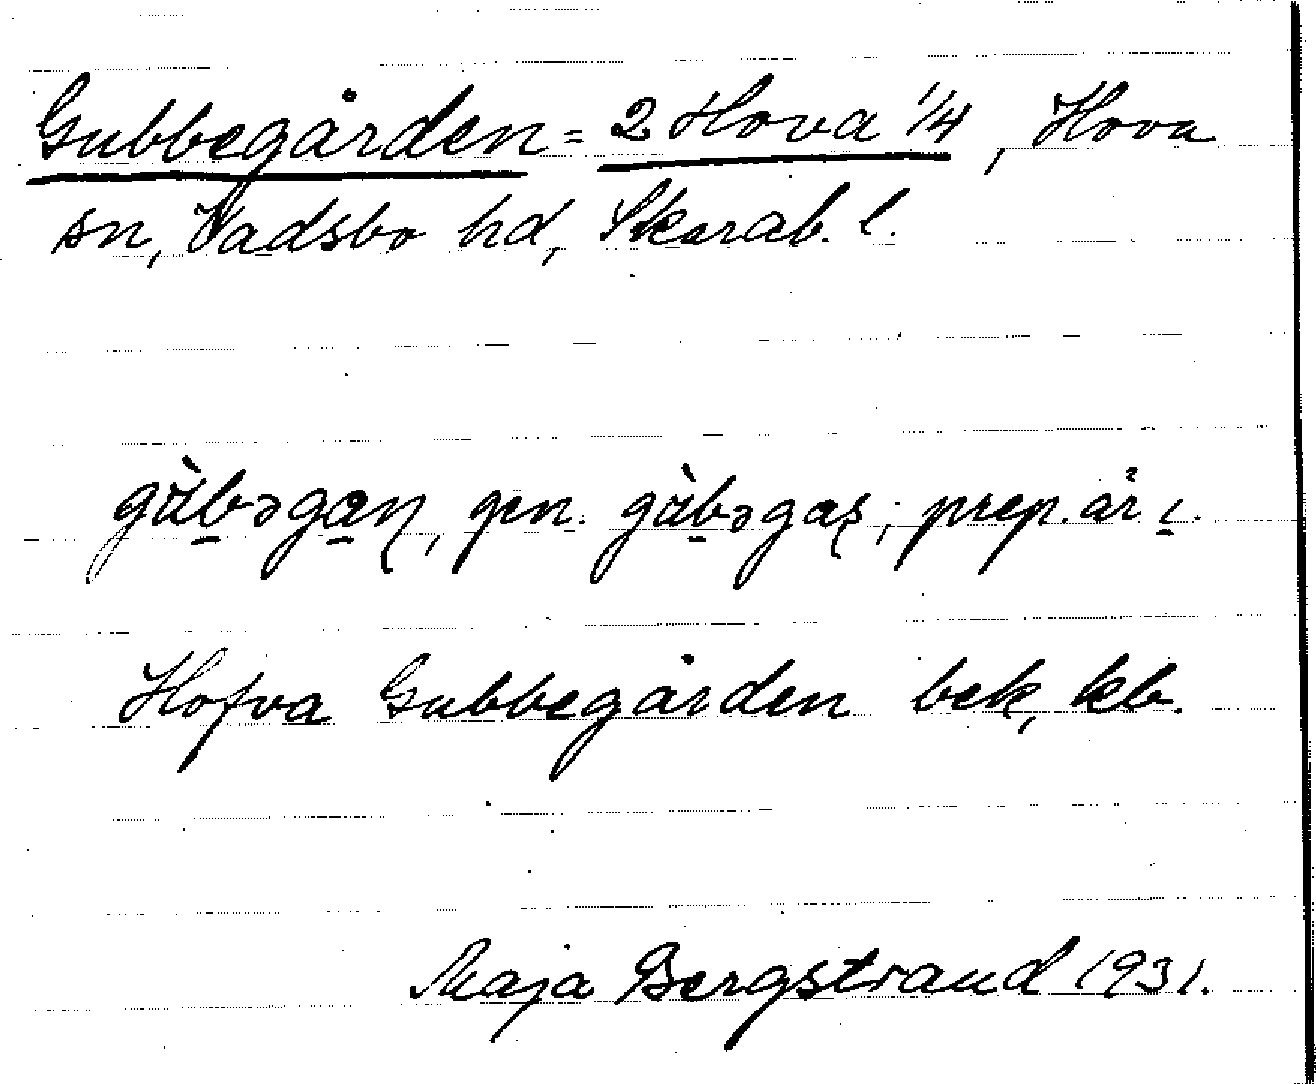 Gubbegården = 2 Hova 1/4, Hova
sn, Vadsbo hd, Skarab. l.
gu̇̀b̲əga̲ɳ, gen. gu̇̀b̲əgaʂ; prep. är ı̲.
Hofva Gubbegården bek, kb.
Maja Bergstrand 1931.